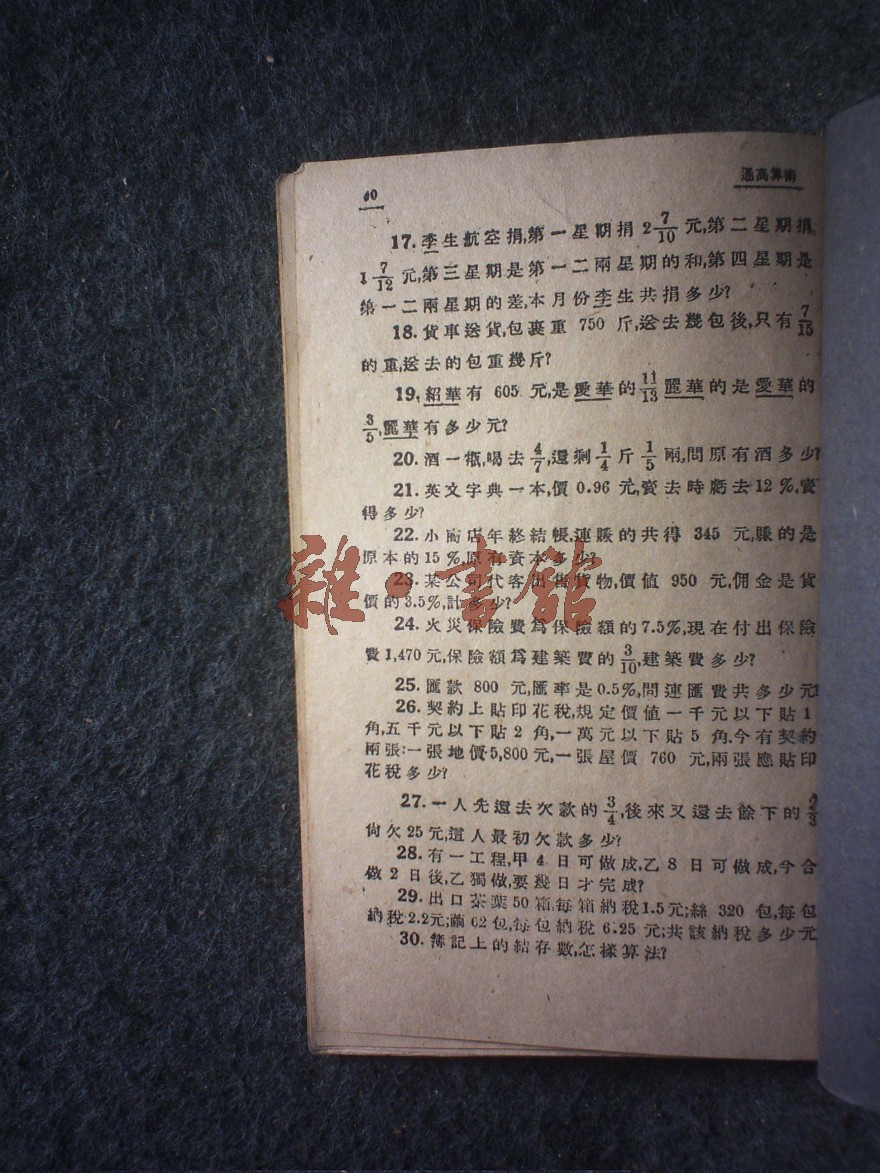 40
通高算術
17. 李生航空捐,第一星期捐 2 7/10 元,第二星期捐
1 7/12 元,第三星期是第一二兩星期的和,第四星期是
第一二兩星期的差,本月份李生共捐多少?
18. 貨車送貨,包裹重 750 斤,送去幾包後,只有 7/15
的重,送去的包重幾斤?
19. 紹華有 605 元,是愛華的 11/13 麗華的是愛華的
3/5,麗華有多少元?
20. 酒一瓶,喝去 4/7,還剩 1/4 斤 1/5 兩,問原有酒多少?
21. 英文字典一本,價 0.96 元,賣去時虧去 12%,賣
得多少?
22. 小商店年終結帳,連賺的共得 345 元,賺的是
原本的 15%,原有資本多少?
23. 某公司代客出售貨物,價值 950 元,佣金是貨
價的 3.5%,計多少?
24. 火災保險費爲保險額的 7.5%,現在付出保險
費 1,470 元,保險額爲建築費的 3/10,建築費多少?
25. 匯款 800 元,匯率是 0.5%,問連匯費共多少元
26. 契約上貼印花稅,規定價值一千元以下貼 1
角,五千元以下貼 2 角,一萬元以下貼 5 角.今有契約
兩張:一張地價 5,800 元,一張屋價 760 元,兩張應貼印
花稅多少?
27. 一人先還去欠款的 3/4,後來又還去餘下的 2/3
尙欠 25 元,這人最初欠款多少?
28. 有一工程,甲 4 日可做成,乙 8 日可做成,今合
做 2 日後,乙獨做,要幾日才完成?
29. 出口茶葉 50 箱,每箱納稅 1.5 元;絲 320 包,每包
納稅 2.2 元;繭 62 包,每包納稅 6.25 元;共該納稅多少元
30. 簿記上的結存數,怎樣算法?
雜·書館